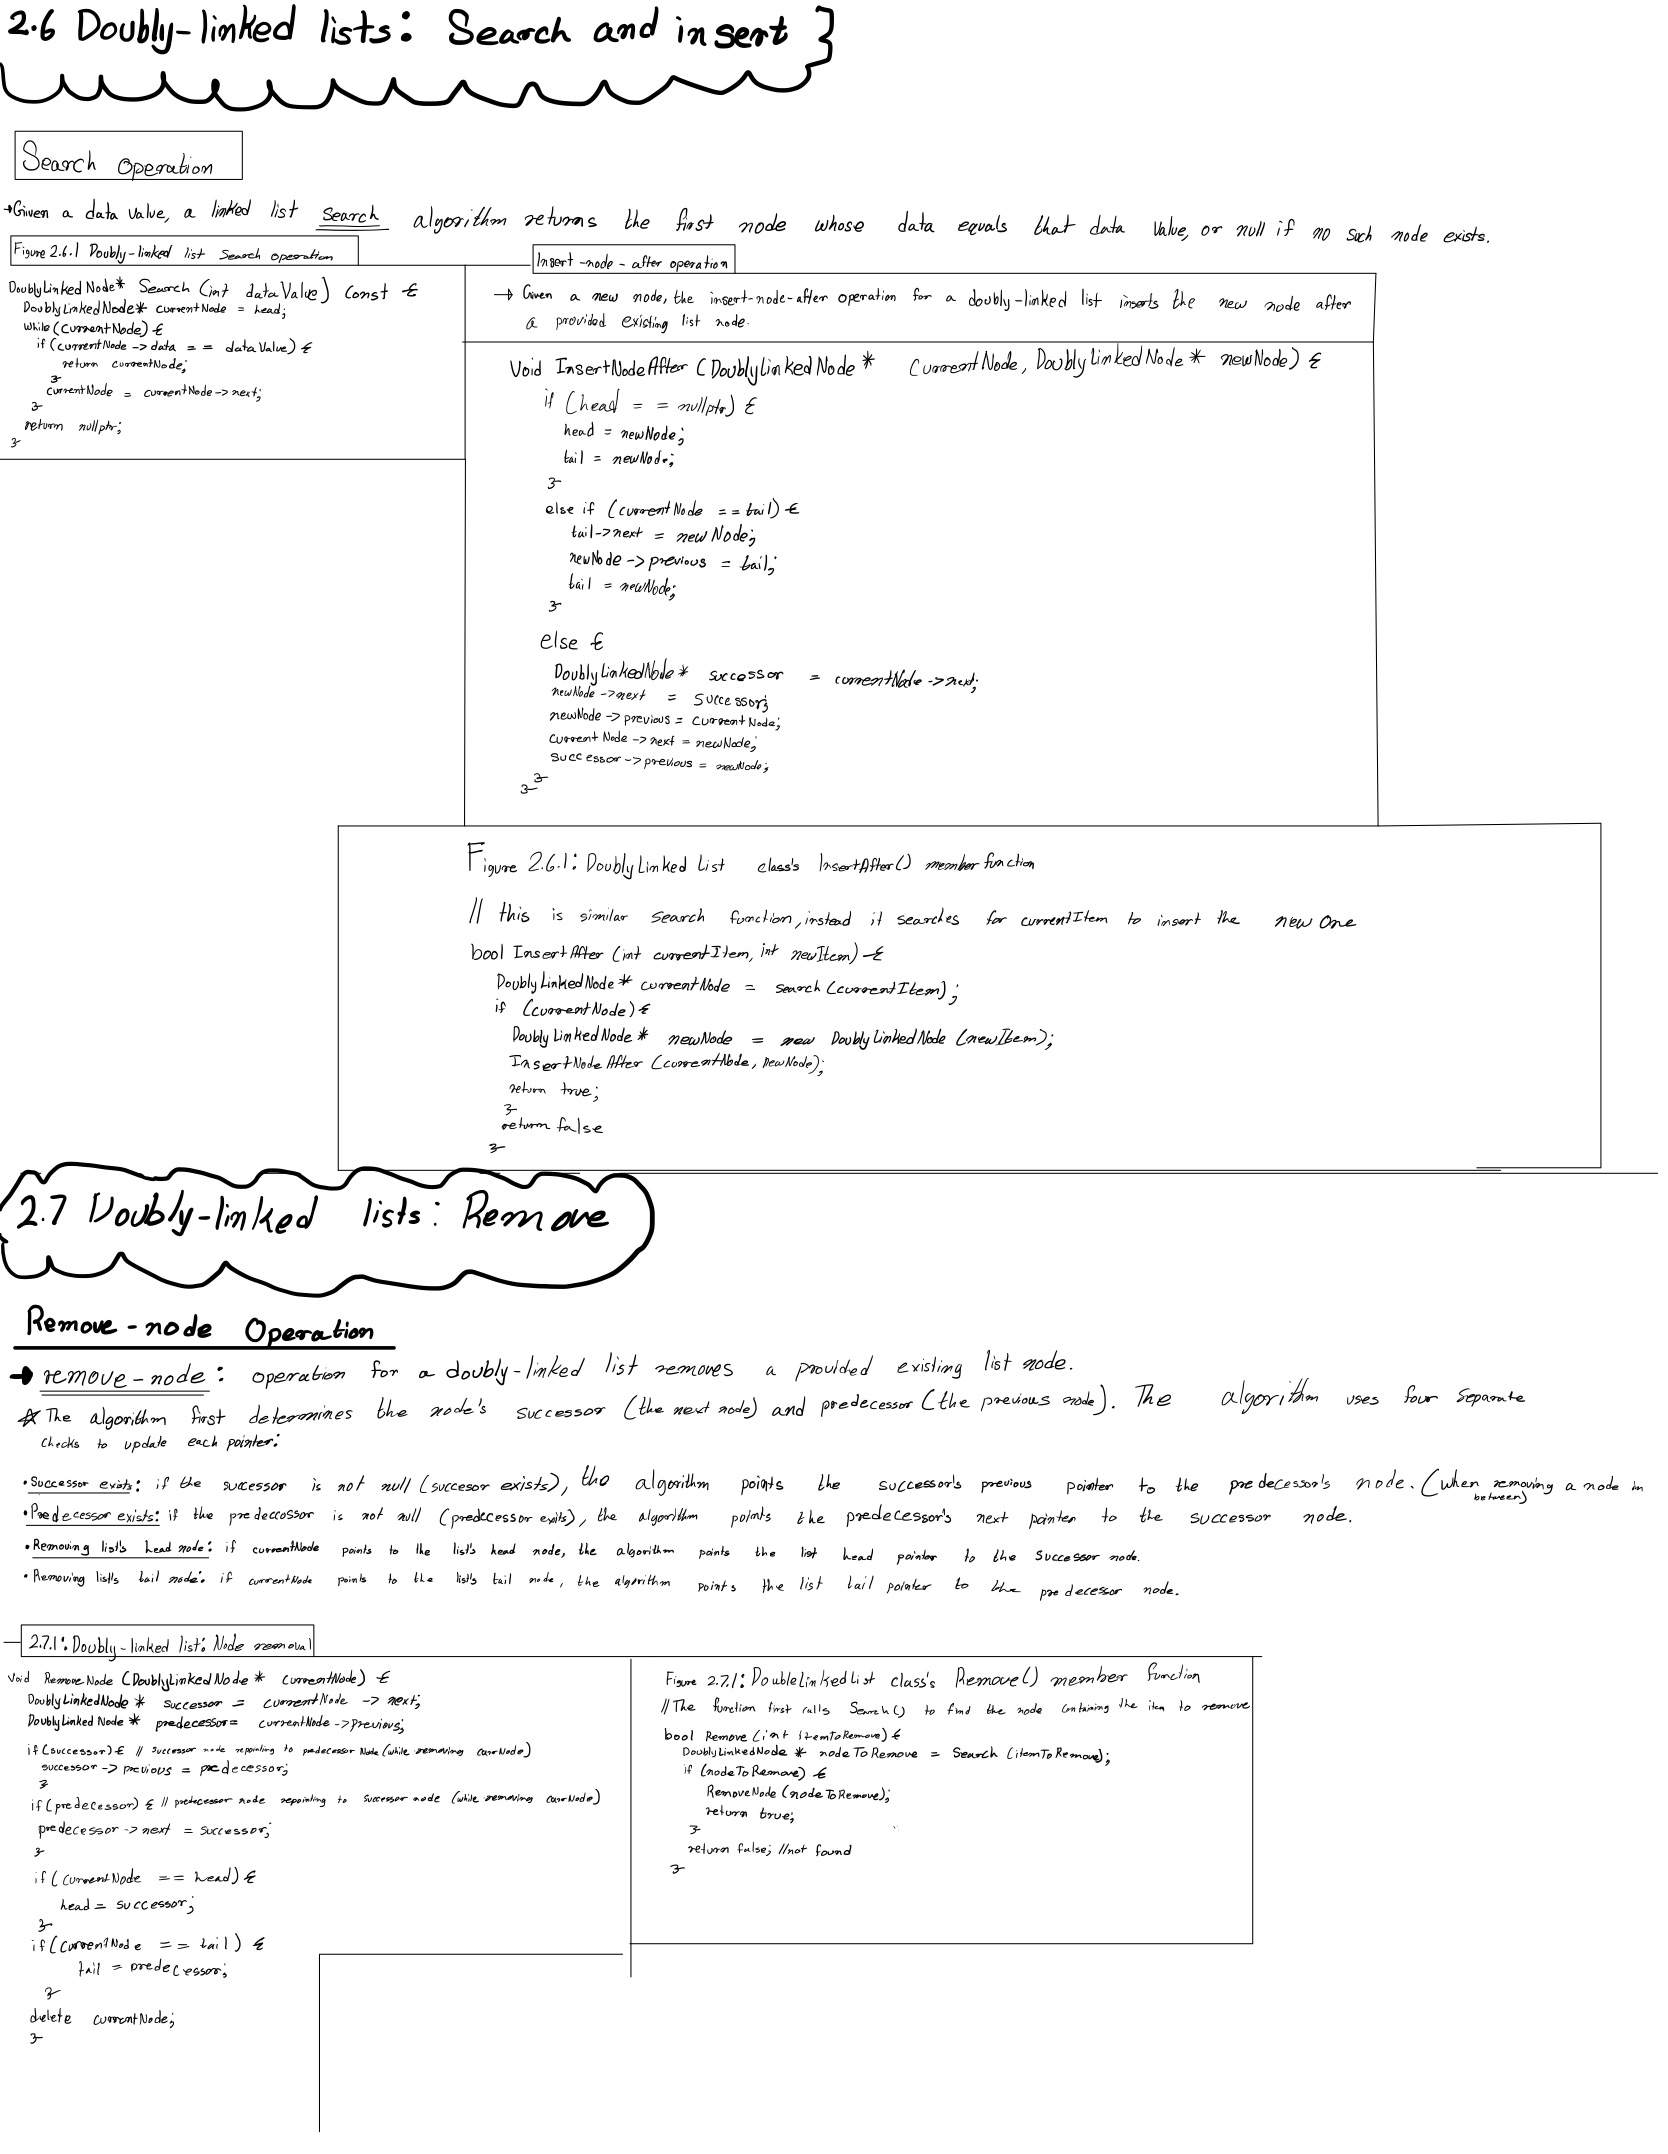 2.6 Doubly-linked lists: Search and insert }
Search Operation
→Given a data value, a linked list Search algorithm returns the first node whose data equals that data value, or null if no such node exists.
Figure 2.6.1 Doubly-linked list Search operation
DoublyLinkedNode* Search (int dataValue) Const {
DoublyLinkedNode* currentNode = head;
while (currentNode) {
if (currentNode -> data == dataValue) {
return currentNode;
}
currentNode = currentNode -> next;
}
return nullptr;
}
Insert-node-after operation
→ Given a new node, the insert-node-after operation for a doubly-linked list inserts the new node after
a provided existing list node.
Void InsertNodeAfter (DoublyLinkedNode* CurrentNode, DoublyLinkedNode* newNode) {
if (head == nullptr) {
head = newNode;
tail = newNode;
}
else if (currentNode == tail) {
tail->next = newNode;
newNode -> previous = tail;
tail = newNode;
}
else {
DoublyLinkedNode* successor = currentNode -> next;
newNode -> next = successor;
newNode -> previous = currentNode;
currentNode -> next = newNode;
successor -> previous = newNode;
}
}
Figure 2.6.1: DoublyLinked List class's InsertAfter() member function
// this is similar search function, instead it searches for currentItem to insert the new one
bool InsertAfter (int currentItem, int newItem) {
DoublyLinkedNode* currentNode = search (currentItem);
if (currentNode) {
DoublyLinkedNode* newNode = new DoublyLinkedNode (newItem);
InsertNodeAfter (currentNode, newNode);
return true;
}
return false
}
2.7 Doubly-linked lists: Remove
Remove-node Operation
→ remove-node: operation for a doubly-linked list removes a provided existing list node.
☆ The algorithm first determines the node's successor (the next node) and predecessor (the previous node). The algorithm uses four separate
checks to update each pointer:
• Successor exists: if the successor is not null (succesor exists), the algorithm points the successor's previous pointer to the predecessor's node. (when removing a node in
between)
• Predecessor exists: if the predeccossor is not null (predecessor exits), the algorithm points the predecessor's next pointer to the successor node.
• Removing list's head node: if currentNode points to the list's head node, the algorithm points the list head pointer to the successor node.
• Removing list's tail node: if currentNode points to the list's tail node, the algorithm points the list tail pointer to the predecessor node.
2.7.1: Doubly-linked list: Node removal
Void RemoveNode (DoublyLinkedNode* currentNode) {
DoublyLinkedNode* successor = currentNode -> next;
DoublyLinkedNode* predecessor = currentNode -> previous;
if (successor) { // successor node repointing to predecessor Node (while removing currNode)
successor -> previous = predecessor;
}
if (predecessor) { // predecessor node repointing to successor node (while removing currNode)
predecessor -> next = successor;
}
if (currentNode == head) {
head = successor;
}
if (currentNode == tail) {
tail = predecessor;
}
delete currentNode;
}
Figure 2.7.1: DoubleLinkedList class's Remove() member function
// The function first calls Search() to find the node containing the item to remove
bool Remove (int itemToRemove) {
DoublyLinkedNode* nodeToRemove = Search (itemToRemove);
if (nodeToRemove) {
RemoveNode (nodeToRemove);
return true;
}
return false; //not found
}